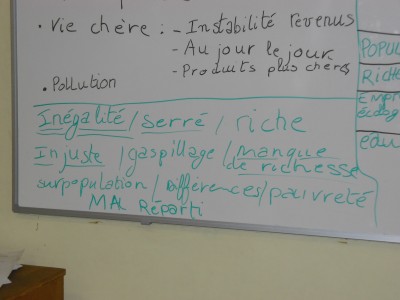 • Vie chère : - Instabilité revenus
- Au jour le jour
- Produits plus chères
• Pollution
Inégalité / serré / riche
Injuste / gaspillage / manque de richesse
surpopulation / Différences / pauvreté
MAL Réparti
POPUL
RICHE
eau